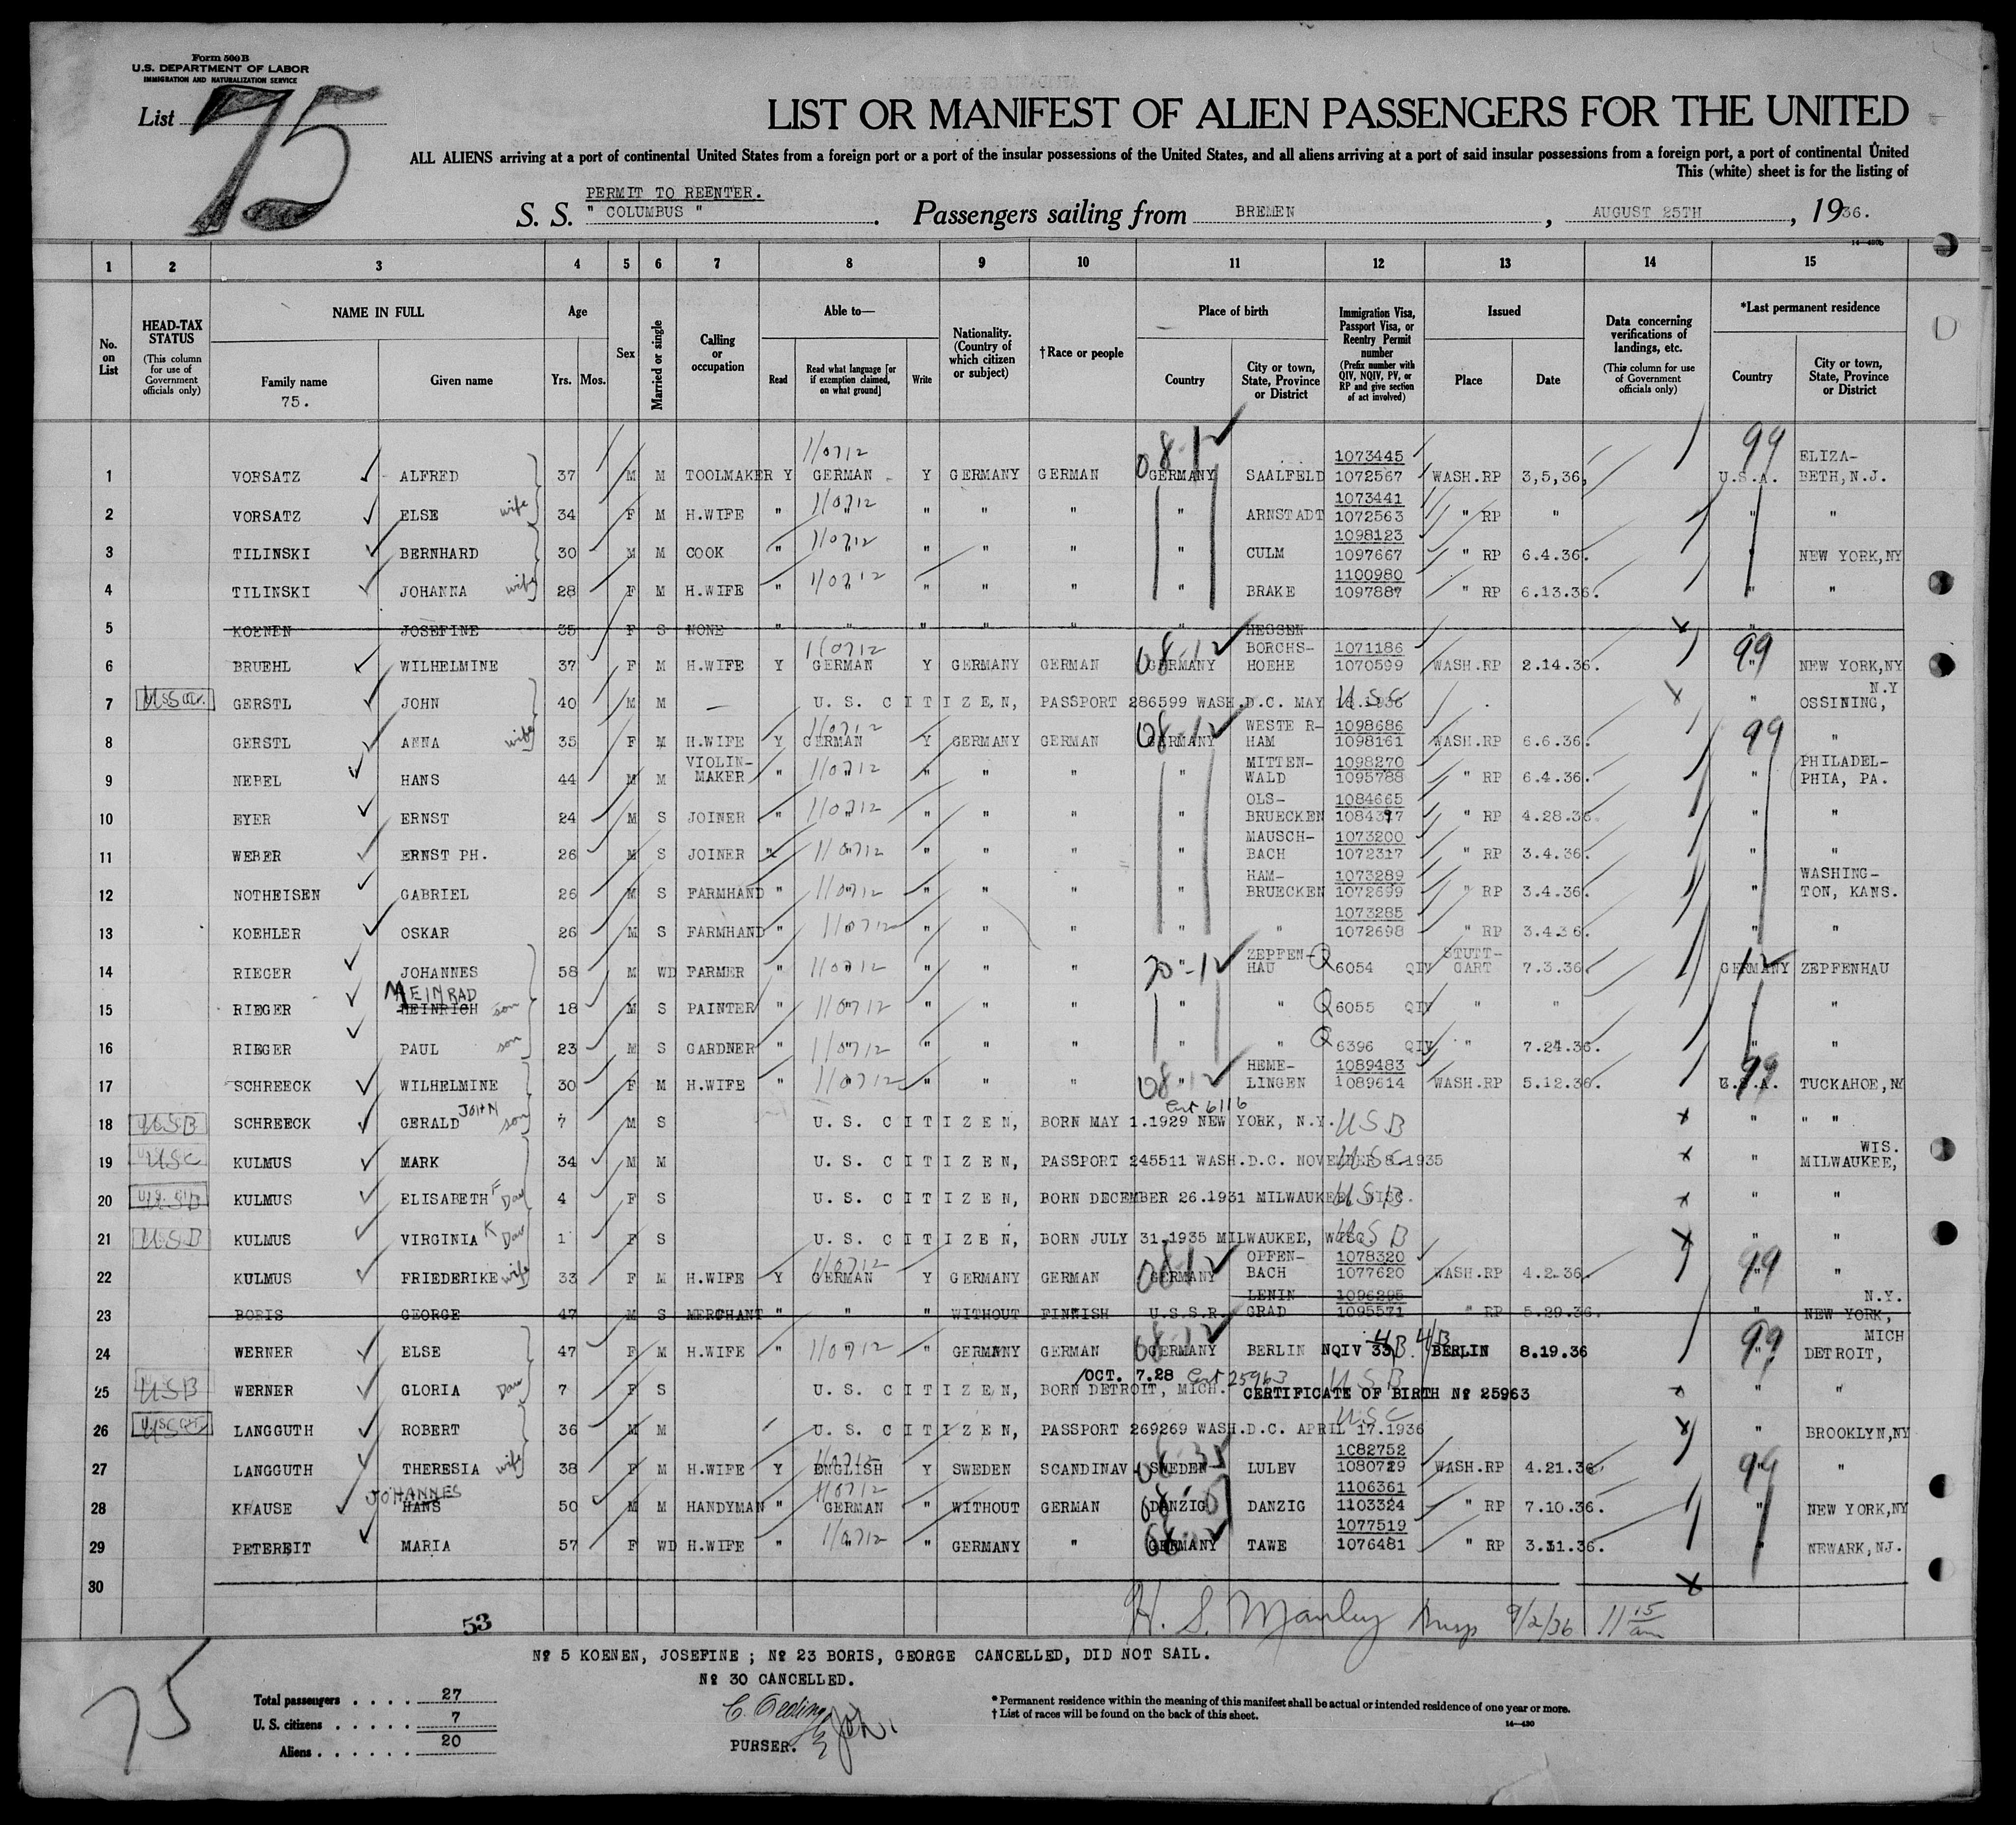 Form 500 B
U.S. DEPARTMENT OF LABOR
IMMIGRATION AND NATURALIZATION SERVICE
List 75
LIST OR MANIFEST OF ALIEN PASSENGERS FOR THE UNITED
ALL ALIENS arriving at a port of continental United States from a foreign port or a port of the insular possessions of the United States, and all aliens arriving at a port of said insular possessions from a foreign port, a port of continental United
This (white) sheet is for the listing of
PERMIT TO REENTER.
S. S. " COLUMBUS " . Passengers sailing from BREMEN , AUGUST 25TH , 1936.
14—430b
1 2 3 4 5 6 7 8 9 10 11 12 13 14 15
No. on List
HEAD-TAX STATUS (This column for use of Government officials only)
NAME IN FULL
Family name
75.
Given name
Age
Yrs. Mos.
Sex
Married or single
Calling or occupation
Able to—
Read
Read what language [or if exemption claimed, on what ground]
Write
Nationality. (Country of which citizen or subject)
† Race or people
Place of birth
Country
City or town, State, Province or District
Immigration Visa, Passport Visa, or Reentry Permit number (Prefix number with QIV, NQIV, PV, or RP and give section of act involved)
Issued
Place
Date
Data concerning verifications of landings, etc. (This column for use of Government officials only)
*Last permanent residence
Country
City or town, State, Province or District
1 VORSATZ ALFRED 37 M M TOOLMAKER Y 110712 GERMAN Y GERMANY GERMAN 08-12 GERMANY SAALFELD 1073445 1072567 WASH.RP 3,5,36, 99 U.S.A. ELIZA- BETH,N.J.
2 VORSATZ ELSE wife 34 F M H.WIFE " 110712 " " " " " ARNSTADT 1073441 1072563 " RP " " "
3 TILINSKI BERNHARD 30 M M COOK " 110712 " " " " " CULM 1098123 1097667 " RP 6.4.36. " NEW YORK,NY
4 TILINSKI JOHANNA wife 28 F M H.WIFE " 110712 " " " " " BRAKE 1100980 1097887 " RP 6.13.36. " "
5 KOENEN JOSEFINE 35 F S NONE " " " " " " HESSEN "
6 BRUEHL WILHELMINE 37 F M H.WIFE Y 110712 GERMAN Y GERMANY GERMAN 08-12 GERMANY BORCHS- HOEHE 1071186 1070599 WASH.RP 2.14.36. 99 " NEW YORK,NY
7 GERSTL JOHN 40 M M — U. S. C I T I Z E N, PASSPORT 286599 WASH.D.C. MAY USC 1936 " N.Y OSSINING,
8 GERSTL ANNA wife 35 F M H.WIFE Y 110712 GERMAN Y GERMANY GERMAN 08-12 GERMANY WESTE R- HAM 1098686 1098161 WASH.RP 6.6.36. 99 "
9 NEBEL HANS 44 M M VIOLIN- MAKER " 110712 " " " " " MITTEN- WALD 1098270 1095788 " RP 6.4.36. " PHILADEL- PHIA, PA.
10 EYER ERNST 24 M S JOINER " 110712 " " " " " OLS- BRUECKEN 1084665 1084397 " RP 4.28.36. " "
11 WEBER ERNST PH. 26 M S JOINER " 110712 " " " " " MAUSCH- BACH 1073200 1072317 " RP 3.4.36. " "
12 NOTHEISEN GABRIEL 26 M S FARMHAND " 110712 " " " " " HAM- BRUECKEN 1073289 1072699 " RP 3.4.36. " WASHING- TON, KANS.
13 KOEHLER OSKAR 26 M S FARMHAND " 110712 " " " " " " 1073285 1072698 " RP 3.4.36. " "
14 RIEGER JOHANNES 58 M WD FARMER " 110712 " " " " 20-12 " ZEPFEN- HAU Q 6054 QIV STUTT- GART 7.3.36. 12 GERMANY ZEPFENHAU
15 RIEGER MEINRAD HEINRICH son 18 M S PAINTER " 110712 " " " " " " Q 6055 QIV " " " "
16 RIEGER PAUL son 23 M S GARDNER " 110712 " " " " " " Q 6396 QIV " 7.24.36. " "
17 SCHREECK WILHELMINE 30 F M H.WIFE " 110712 " " " " 08-12 " HEME- LINGEN 1089483 1089614 WASH.RP 5.12.36. 99 U.S.A. TUCKAHOE,NY
18 USB SCHREECK GERALD JOHN son 7 M S U. S. C I T I Z E N, BORN MAY 1.1929 NEW YORK, N.Y. Cert 6116 USB " " "
19 USC KULMUS MARK 34 M M U. S. C I T I Z E N, PASSPORT 245511 WASH.D.C. NOVEMBER 8.1935 USC " WIS. MILWAUKEE,
20 KULMUS ELISABETH F Dau 4 F S U. S. C I T I Z E N, BORN DECEMBER 26.1931 MILWAUKEE, WISC. USB " "
21 USB KULMUS VIRGINIA K Dau 1 F S U. S. C I T I Z E N, BORN JULY 31.1935 MILWAUKEE, USB " "
22 KULMUS FRIEDERIKE wife 33 F M H.WIFE Y 110712 GERMAN Y GERMANY GERMAN 08-12 GERMANY OPFEN- BACH 1078320 1077620 WASH.RP 4.2.36. 99 " "
23 BORIS GEORGE 47 M S MERCHANT " " " WITHOUT FINNISH U.S.S.R. LENIN GRAD 1096295 1095571 " RP 5.29.36. " N.Y. NEW YORK,
24 WERNER ELSE 47 F M H.WIFE " 110712 " " GERMANY GERMAN 08-12 GERMANY BERLIN NQIV 4/B BERLIN 8.19.36 99 " MICH DETROIT,
25 USB WERNER GLORIA Dau 7 F S U. S. C I T I Z E N, OCT. 7.28 BORN DETROIT, MICH. Cert 25963 USB CERTIFICATE OF BIRTH № 25963 " "
26 LANGGUTH ROBERT 36 M M U. S. C I T I Z E N, PASSPORT 269269 WASH.D.C. APRIL 17.1936 USC " BROOKLYN,NY
27 LANGGUTH THERESIA wife 38 F M H.WIFE Y 110712 ENGLISH Y SWEDEN SCANDINAV SWEDEN LULEV 1082752 1080729 WASH.RP 4.21.36. 99 " "
28 KRAUSE JOHANNES HANS 50 M M HANDYMAN " 110712 GERMAN " WITHOUT GERMAN DANZIG DANZIG 1106361 1103324 " RP 7.10.36. " NEW YORK,NY
29 PETEREIT MARIA 57 F WD H.WIFE " 110712 " " GERMANY " 08-12 GERMANY TAWE 1077519 1076481 " RP 3.31.36. " NEWARK,NJ.
30
53
H. S. Manley Insp 9/2/36 11 15 am
№ 5 KOENEN, JOSEFINE ; № 23 BORIS, GEORGE CANCELLED, DID NOT SAIL.
№ 30 CANCELLED.
75
Total passengers . . . . 27
U. S. citizens . . . . . 7
Aliens . . . . . . 20
PURSER.
* Permanent residence within the meaning of this manifest shall be actual or intended residence of one year or more.
† List of races will be found on the back of this sheet.
14—430